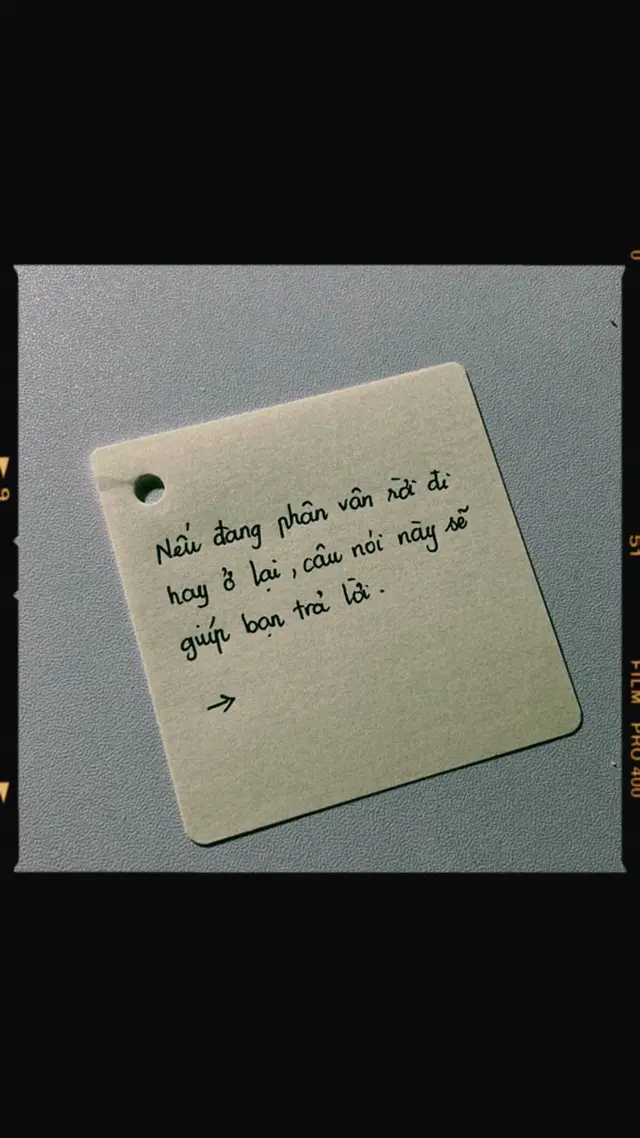 Nếu đang phân vân rời đi
hay ở lại, câu nói này sẽ
giúp bạn trả lời.
→
9
51
FILM PRO 400